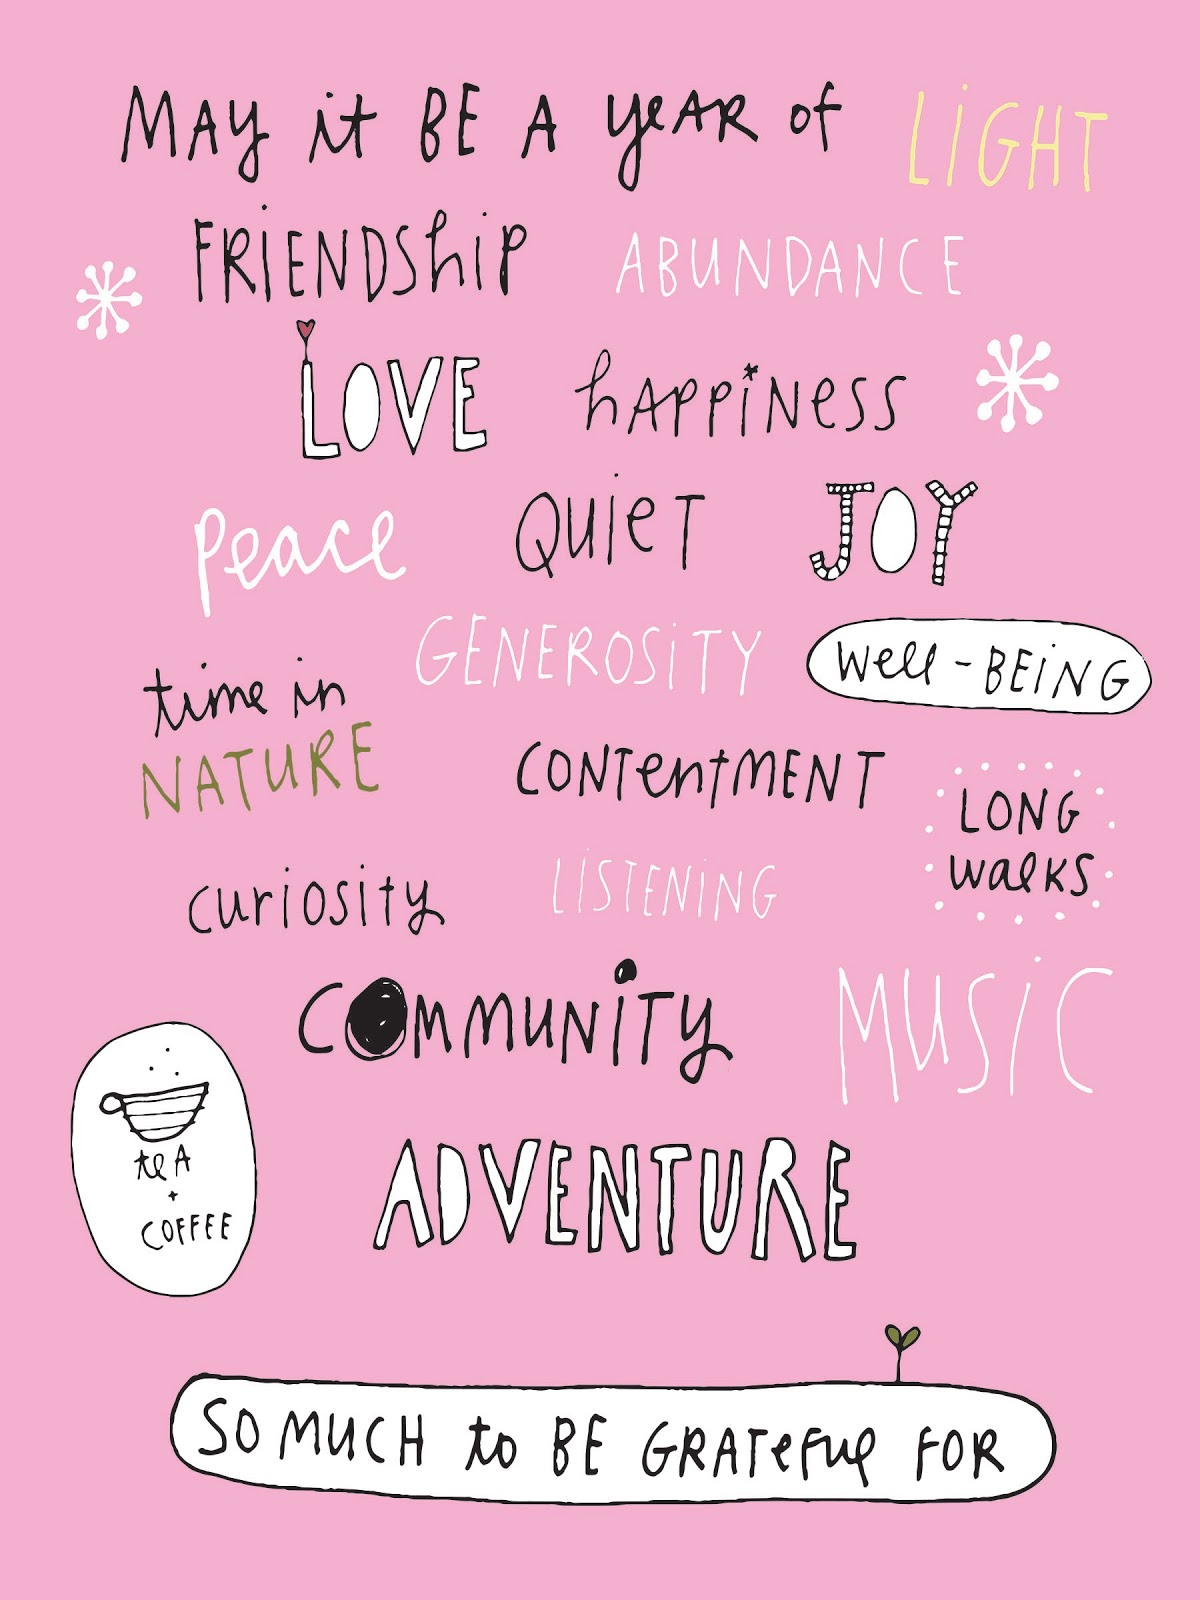 MAY it BE A yeAR of LiGHT
FRIENDShip ABUNDANCE
LOVE hAPPiNeSS
Peace QUIeT JOY
GENEROSiTY well-BEiNG
time in
NATURE
CONTentMENT
LONG
walks
curiosity LISTENiNG
COMMUNiTY MUSiC
teA
+
COFFEE
ADVENTURE
SO MUCH to BE GRATeful FOR